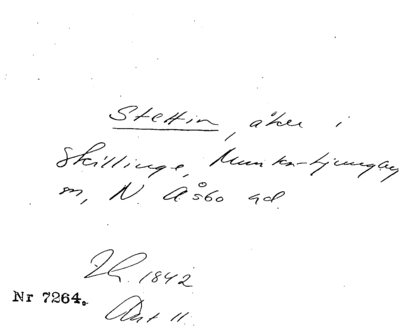 Stettin, åker i
Skillinge, Munka-Ljungby
sn, N. Åsbo hd
Lh. 1842
Akt 11
Nr 7264.